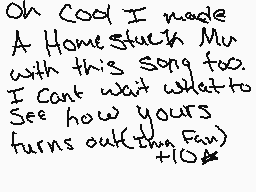 Oh Cool I made
A Homestuck Mv
with this song too.
I Cant wait what to
See how yours
turns out(Imn Fan)
+10★